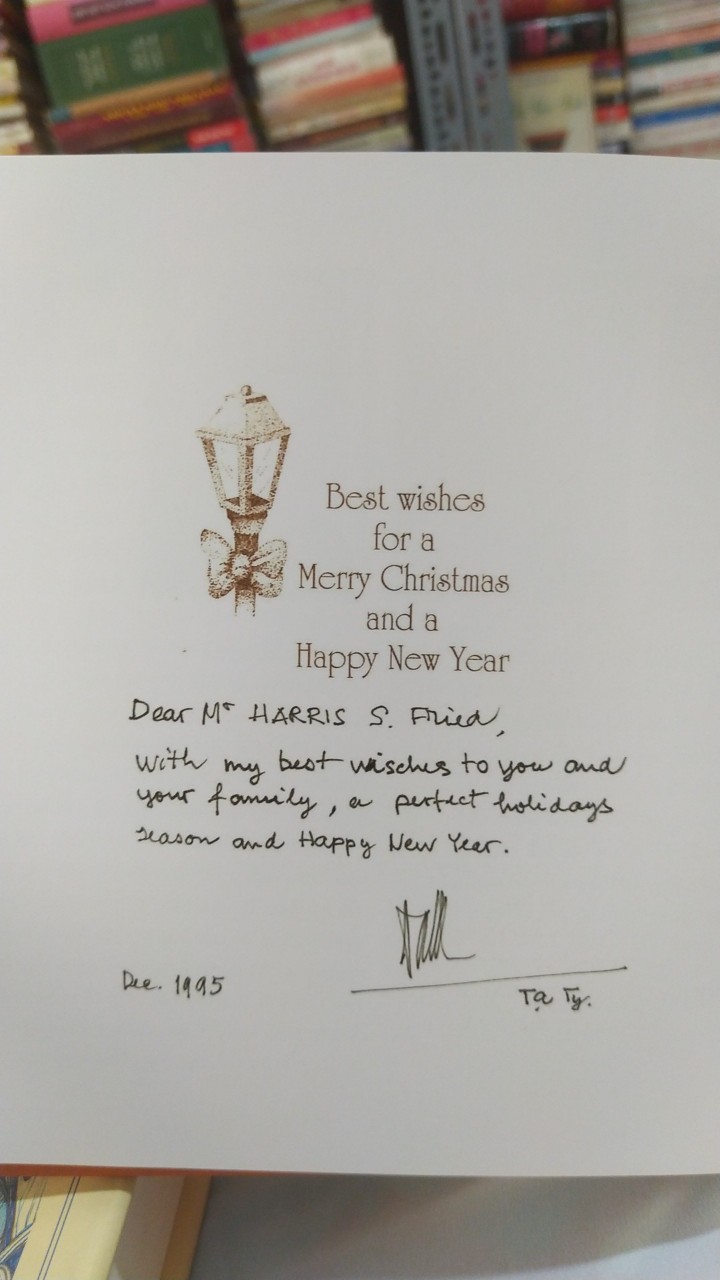 Best wishes
for a
Merry Christmas
and a
Happy New Year
Dear Mr HARRIS S. Fried,
With my best wisches to you and
your family, a perfect holidays
season and Happy New Year.
Dec. 1995
Tạ Tỵ.